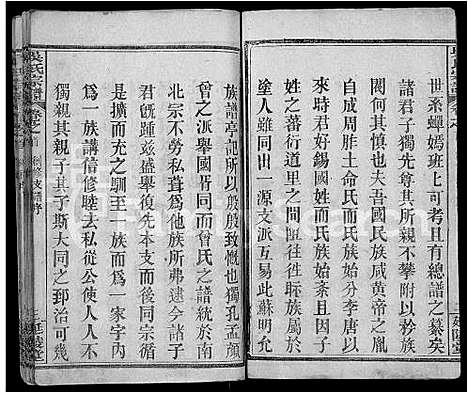 世系蟬嫣班上可考且有總譜之纂矣
諸君子獨先尊其所親不攀附以矜族
閥何其慎也夫吾國民族咸黃帝之胤
自成周胙土命氏而氏族始分李唐以
來時君好錫國姓而氏族始淆且因子
姓之蕃衍道里之睽隔每棼族屬於
塗人雖同出一源支派互易此蘇明允
族譜亭記所以殷殷慨也獨孔孟顏
曾之派舉國胥同而曾氏之譜統於南
北宗不勞私聳爲他族所弗逮今諸子
君旣踵茲盛舉復先本支而後同宗循
是擴而充之馴至一族而爲一家字內
爲一族講信修睦去私從公使人人不
獨親其親子其子斯大同之郅治可幾
吳氏宗譜
卷之首
創修支譜序
三
延陵堂